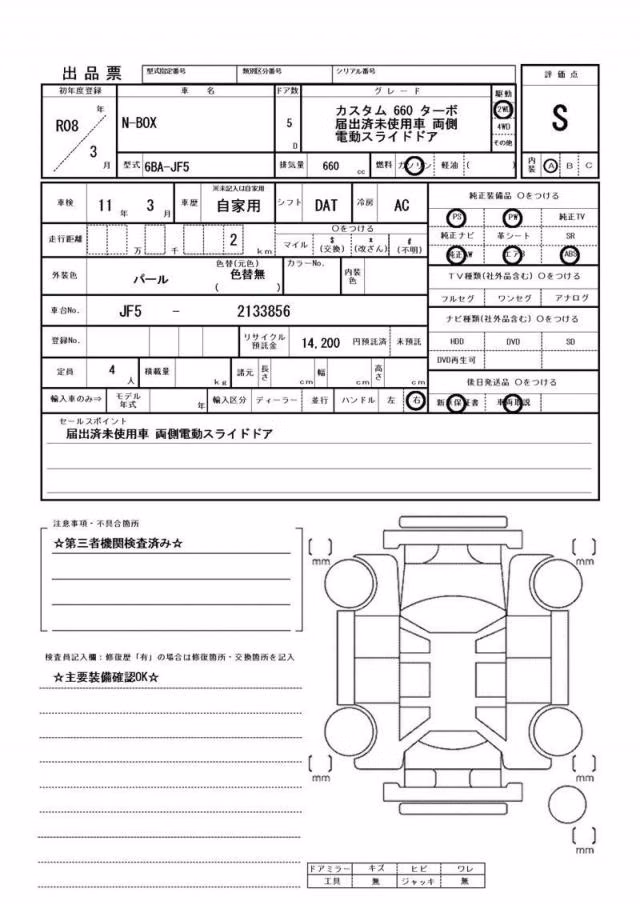 出品票 型式指定番号 類別区分番号 シリアル番号
評価点
初年度登録 車名 ドア数 グレード 駆動
R08 年 3 月
N-BOX
5 D
カスタム 660 ターボ
届出済未使用車 両側
電動スライドドア
2WD
4WD
その他
S
型式 6BA-JF5 排気量 660 cc 燃料 ガソリン 軽油 ( )
内装 A B C
車検 11 年 3 月 車歴 ※未記入は自家用 自家用 シフト DAT 冷房 AC
純正装備品 〇をつける
PS PW 純正TV
純正ナビ 革シート SR
純正AW エアB ABS
走行距離 万 千 2 km
〇をつける
マイル $(交換) x(改ざん) #(不明)
外装色 パール 色替(元色) 色替無 ( ) カラーNo. 内装色
TV種類(社外品含む) 〇をつける
フルセグ ワンセグ アナログ
車台No. JF5 - 2133856
ナビ種類(社外品含む) 〇をつける
HDD DVD SD
DVD再生可
登録No. リサイクル預託金 14,200 円預託済 未預託
定員 4 人 積載量 kg 諸元 長さ cm 幅 cm 高さ cm
後日発送品 〇をつける
新車保証書 車両取説
輸入車のみ⇒ モデル年式 年 輸入区分 ディーラー 並行 ハンドル 左 右
セールスポイント
届出済未使用車 両側電動スライドドア
注意事項・不具合箇所
☆第三者機関検査済み☆
検査員記入欄：修復歴「有」の場合は修復箇所・交換箇所を記入
☆主要装備確認OK☆
mm
mm
mm
mm
mm
ドアミラー キズ ヒビ ワレ
工具 無 ジャッキ 無